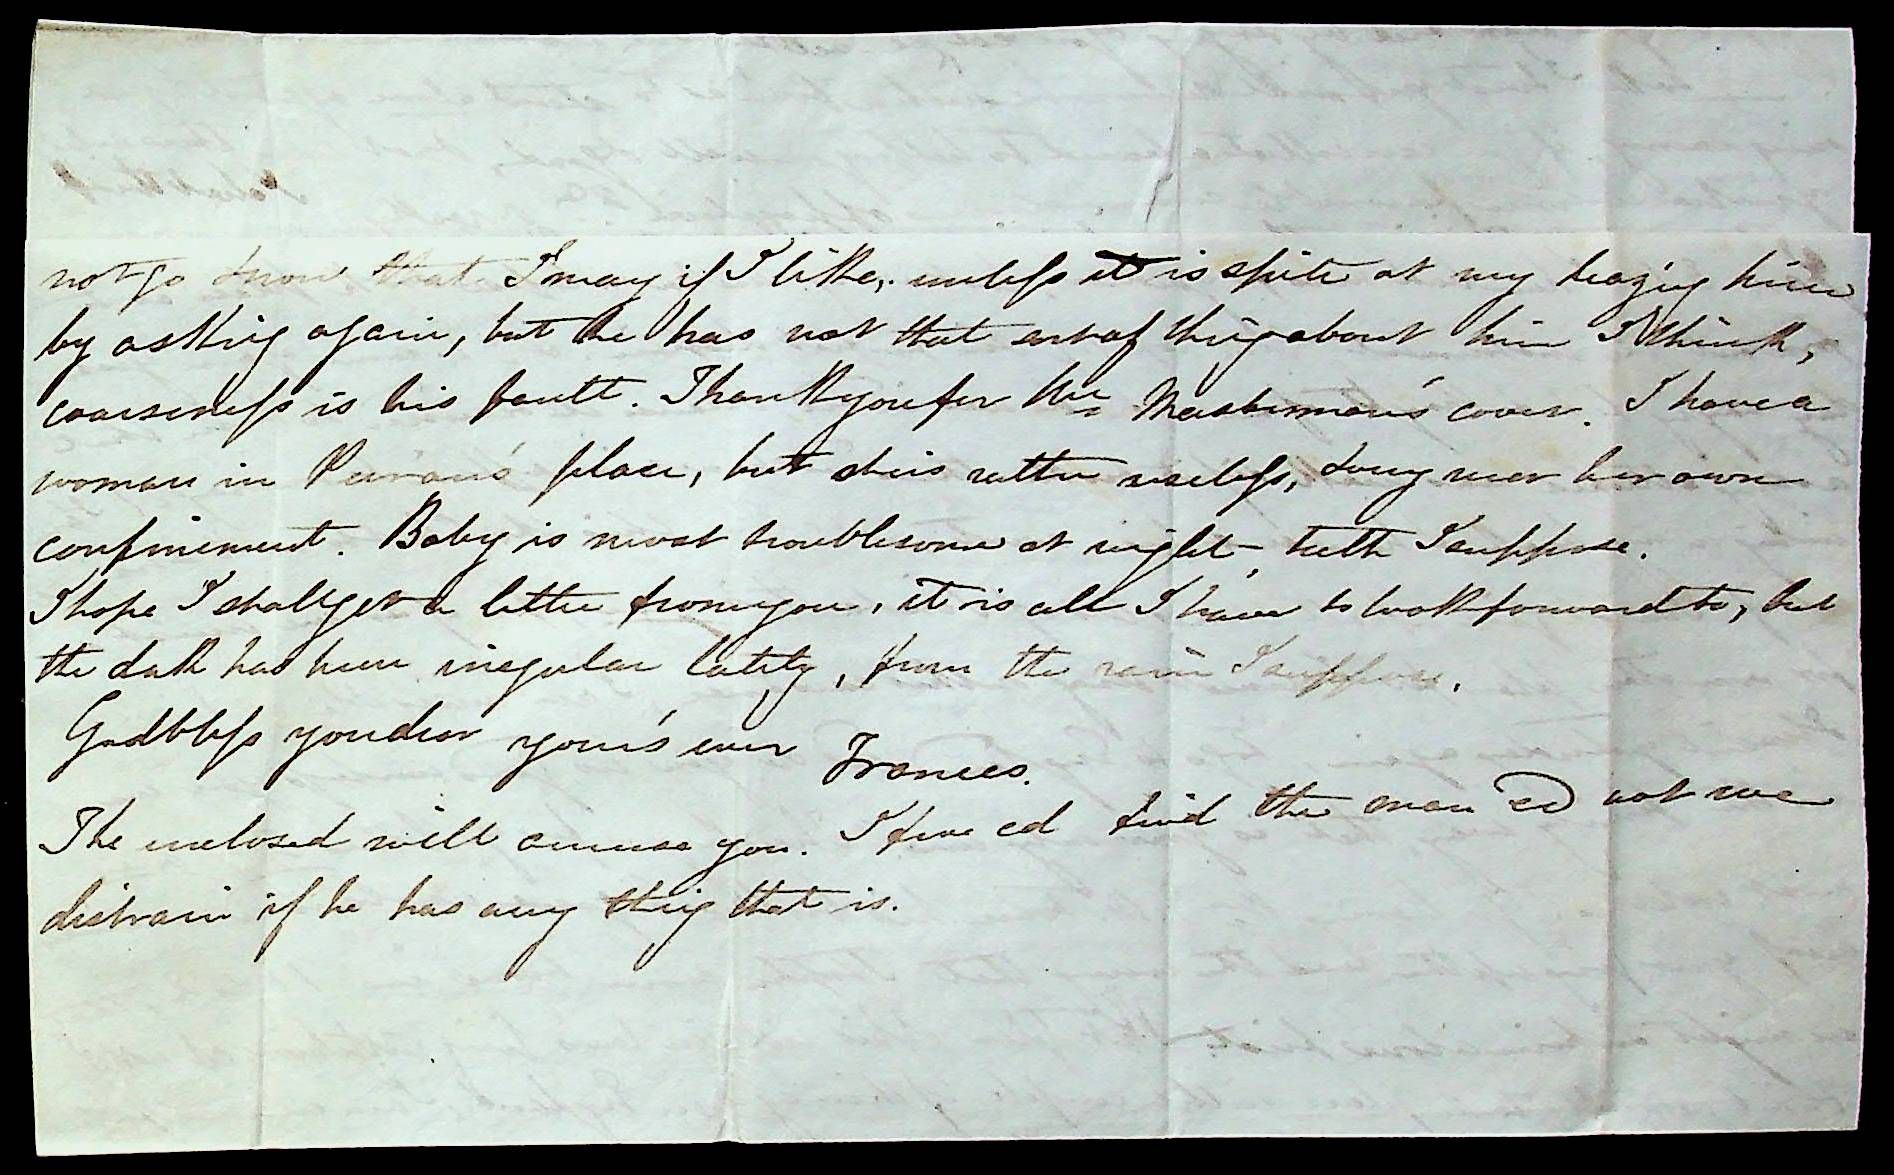 not go know that I may if I like, unless it is spite at my teazing him
by asking again, but he has not that sort of thing about him I think,
coarseness is his fault. Thank you for Mrs Masterman's cover. I have a
woman in place, but she is rather useless, being near her own
confinement. Baby is most troublesome at night – teeth I suppose.
I hope I shall get a letter from you, it is all I have to look forward to, but
the dak has been irregular lately, from the rain I suppose.
God bless you dear your's ever Frances.
The enclosed will amuse you. If we cd find the man cd not we
distrain if he has any thing that is.